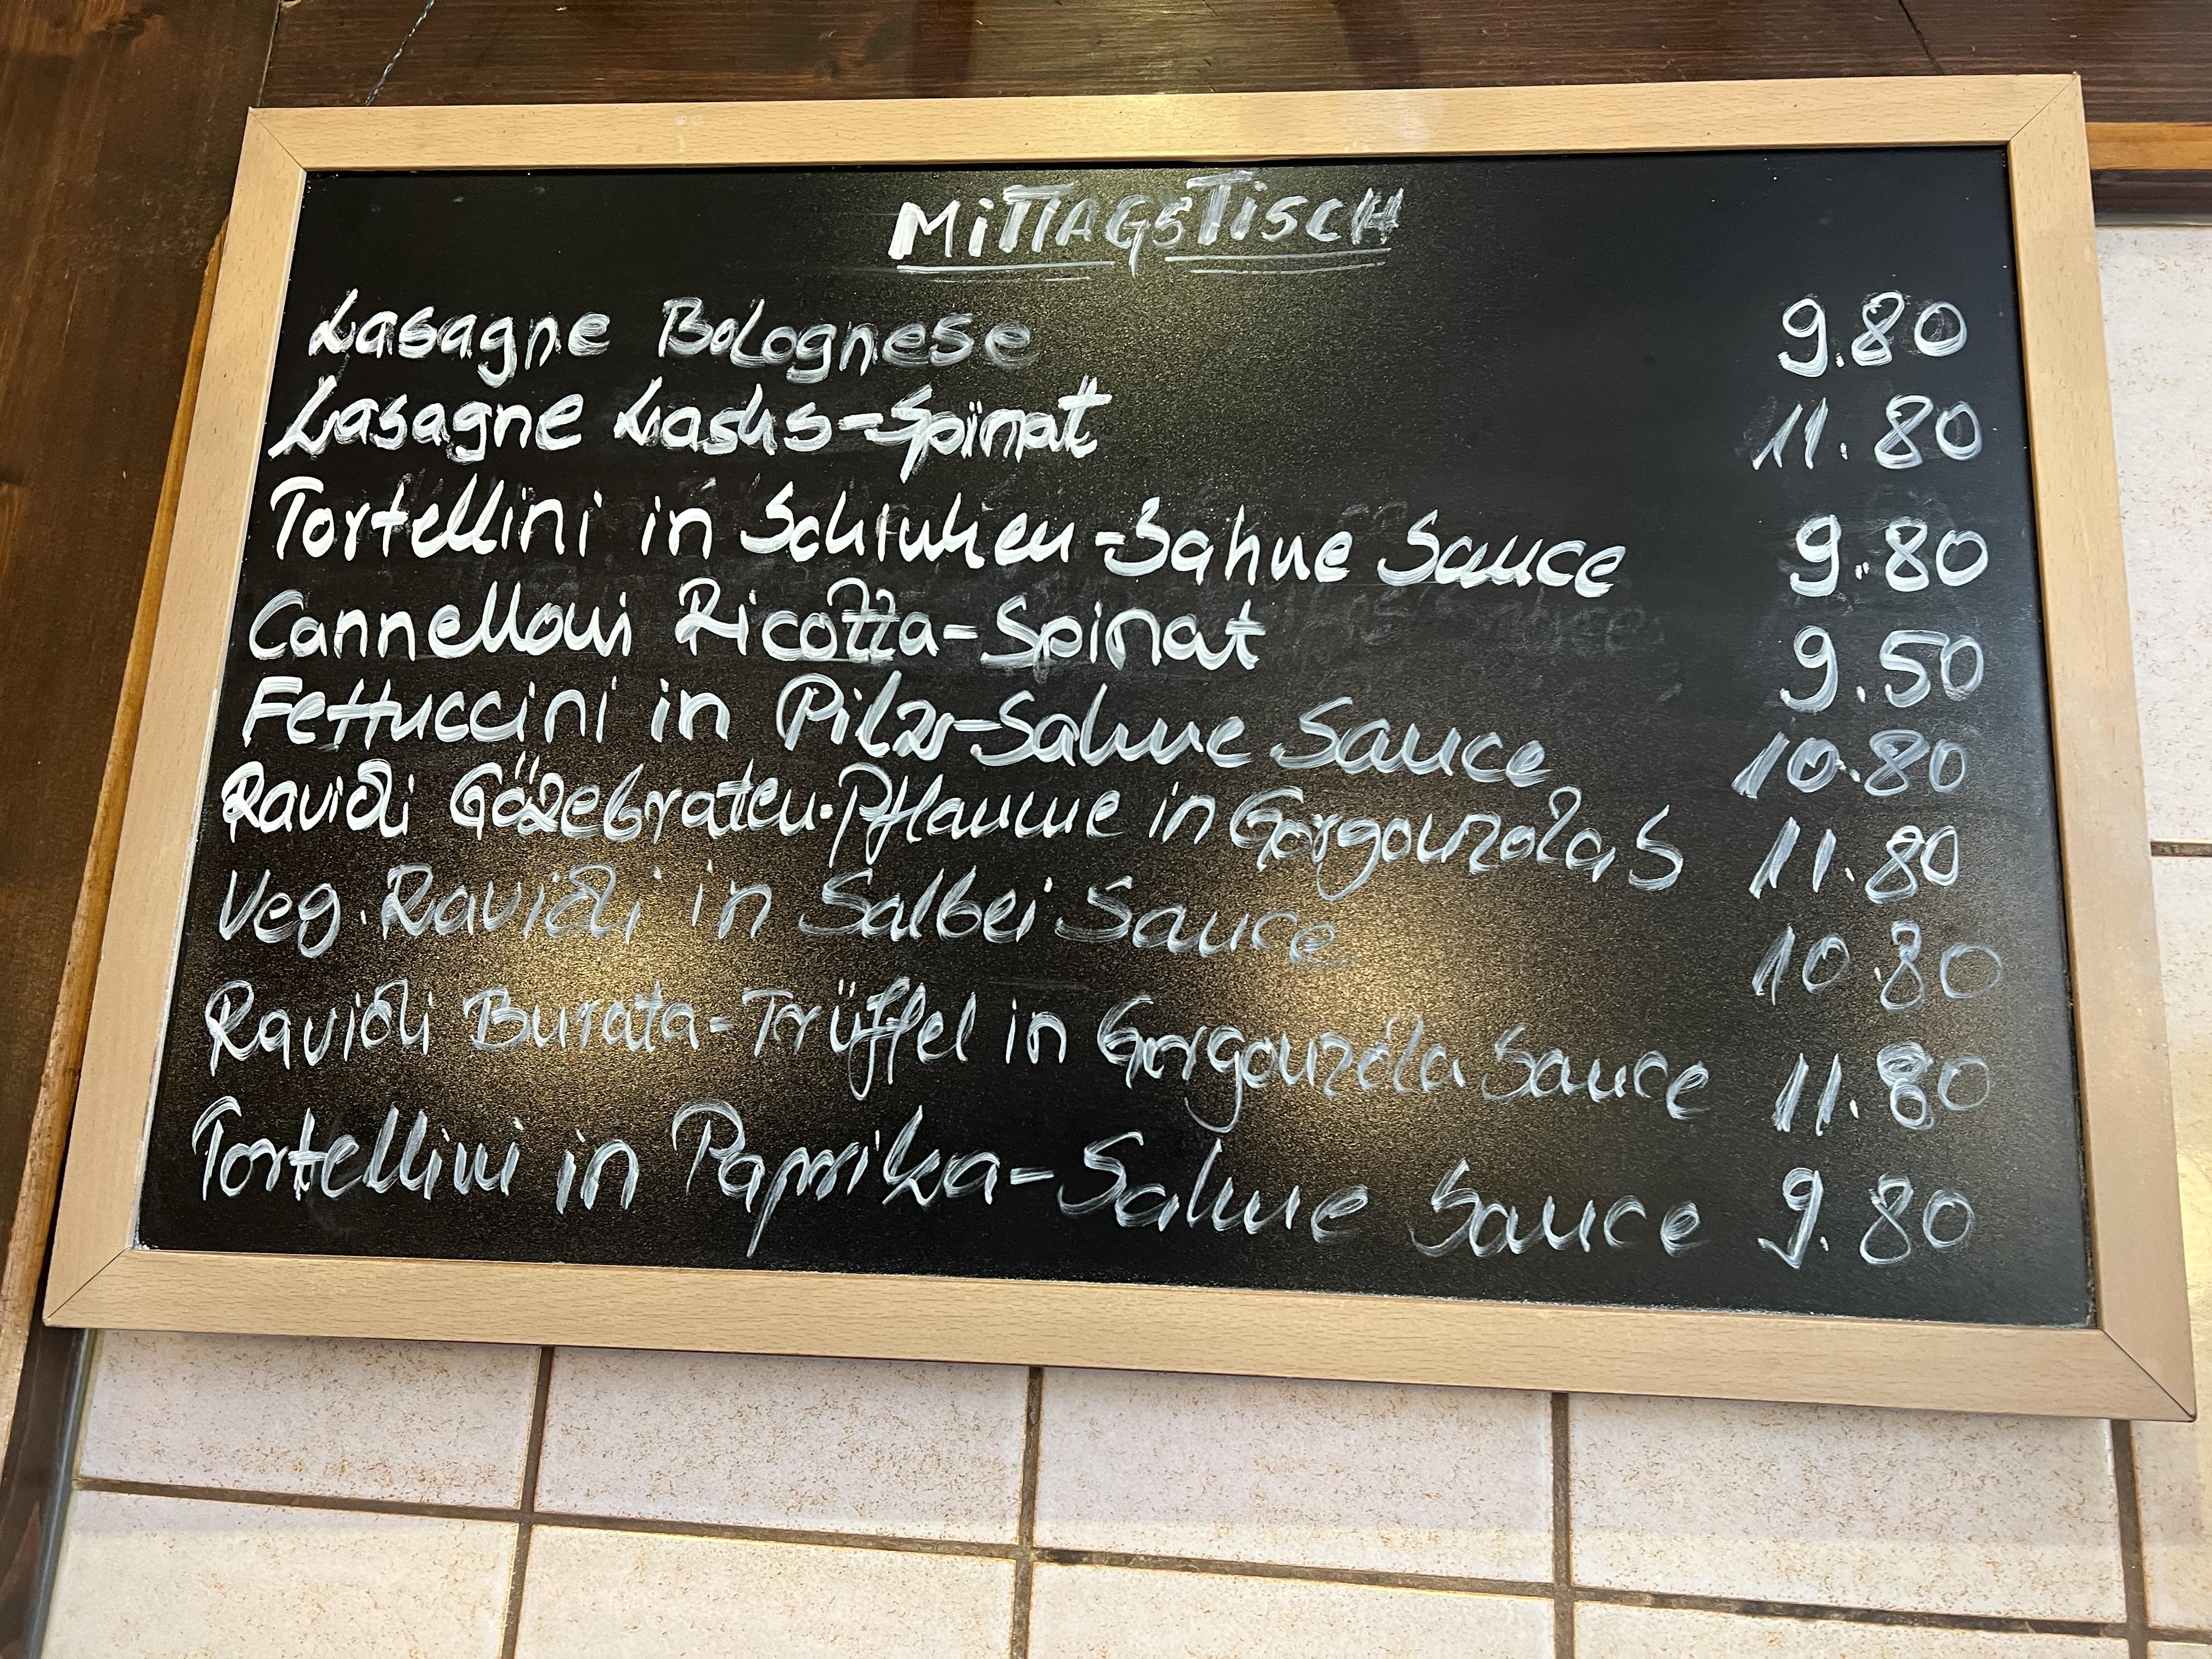 MiTTAGSTiSCH
Lasagne Bolognese 9.80
Lasagne Lachs-Spinat 11.80
Tortellini in Schinken-Sahne Sauce 9.80
Cannelloni Ricotta-Spinat 9.50
Fettuccini in Pilz-Sahne Sauce 10.80
Ravioli Gänsebraten-Pflaume in Gorgonzola S 11.80
Veg. Ravioli in Salbei Sauce 10.80
Ravioli Burata-Trüffel in Gorgonzola Sauce 11.80
Tortellini in Paprika-Sahne Sauce 9.80